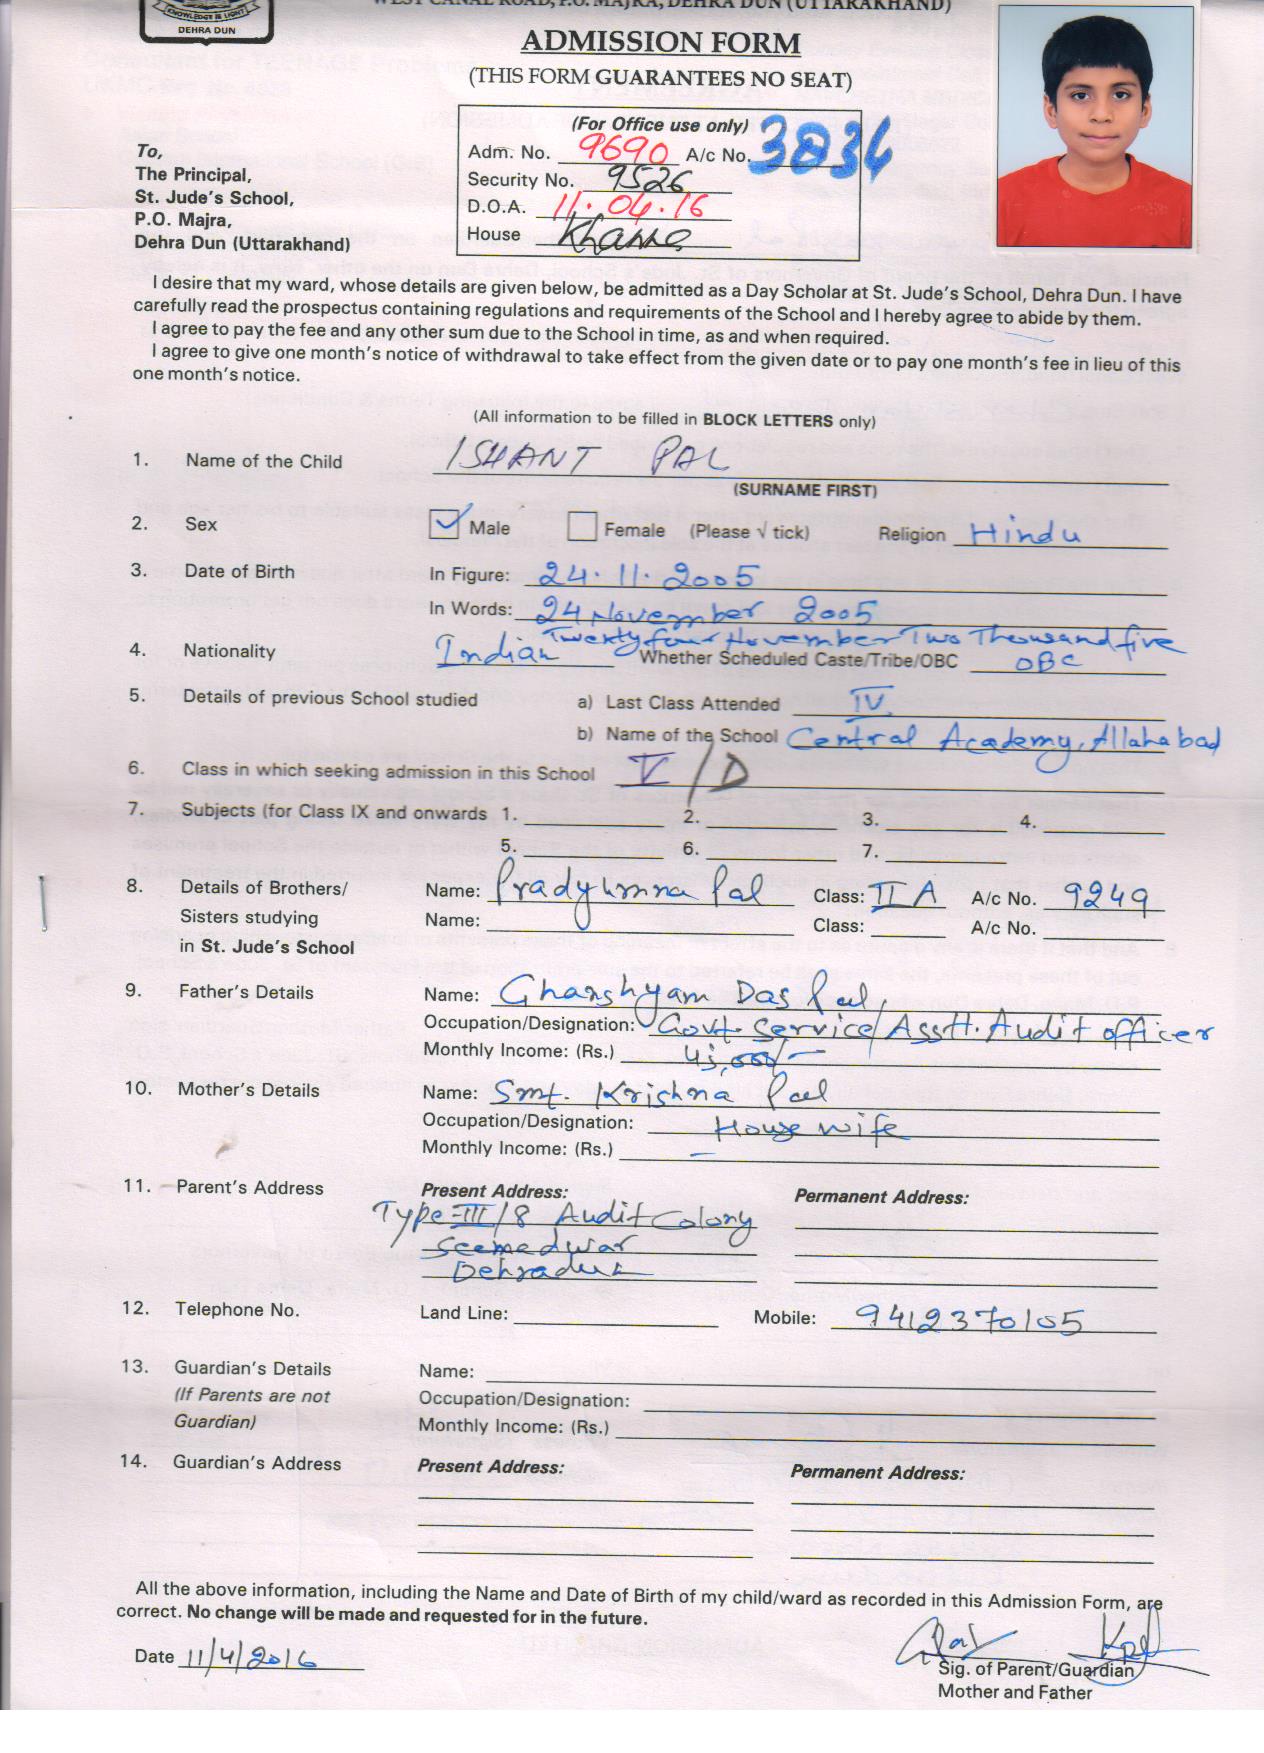 KNOWLEDGE IS LIGHT
DEHRA DUN
WEST CANAL ROAD, P.O. MAJRA, DEHRA DUN (UTTARAKHAND)
ADMISSION FORM
(THIS FORM GUARANTEES NO SEAT)
(For Office use only)
Adm. No. 9690 A/c No. 3836
Security No. 9526
D.O.A. 11.04.16
House Khanna
To,
The Principal,
St. Jude's School,
P.O. Majra,
Dehra Dun (Uttarakhand)
I desire that my ward, whose details are given below, be admitted as a Day Scholar at St. Jude's School, Dehra Dun. I have
carefully read the prospectus containing regulations and requirements of the School and I hereby agree to abide by them.
I agree to pay the fee and any other sum due to the School in time, as and when required.
I agree to give one month's notice of withdrawal to take effect from the given date or to pay one month's fee in lieu of this
one month's notice.
(All information to be filled in BLOCK LETTERS only)
1. Name of the Child ISHANT PAL
(SURNAME FIRST)
2. Sex Male Female (Please √ tick) Religion Hindu
3. Date of Birth In Figure: 24.11.2005
In Words: 24 November 2005
Twenty four November Two Thousand five
4. Nationality Indian Whether Scheduled Caste/Tribe/OBC OBC
5. Details of previous School studied a) Last Class Attended IV
b) Name of the School Central Academy, Allahabad
6. Class in which seeking admission in this School V/D
7. Subjects (for Class IX and onwards 1. 2. 3. 4.
5. 6. 7.
8. Details of Brothers/ Name: Pradyumna Pal Class: II A A/c No. 9249
Sisters studying Name: Class: A/c No.
in St. Jude's School
9. Father's Details Name: Ghanshyam Das Pal
Occupation/Designation: Govt. Service/Asstt. Audit officer
Monthly Income: (Rs.) 45,000/-
10. Mother's Details Name: Smt. Krishna Pal
Occupation/Designation: House wife
Monthly Income: (Rs.) –
11. Parent's Address Present Address: Permanent Address:
Type-III/8 Audit Colony
Seemadwar
Dehradun
12. Telephone No. Land Line: Mobile: 9412370105
13. Guardian's Details Name:
(If Parents are not Occupation/Designation:
Guardian) Monthly Income: (Rs.)
14. Guardian's Address Present Address: Permanent Address:
All the above information, including the Name and Date of Birth of my child/ward as recorded in this Admission Form, are
correct. No change will be made and requested for in the future.
Date 11/4/2016
Sig. of Parent/Guardian
Mother and Father